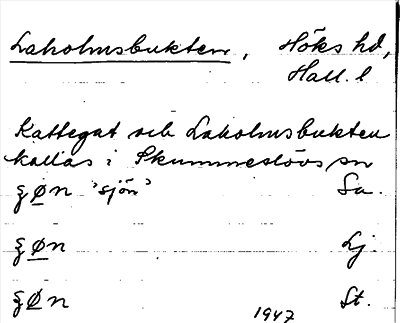 Laholmsbukten, Höks hd,
Hall. l
Kattegat och Laholmsbukten
kallas i Skummeslövs sn
ʂøn 'sjön' Sa.
ʂøn Lj.
ʂøn St.
1947